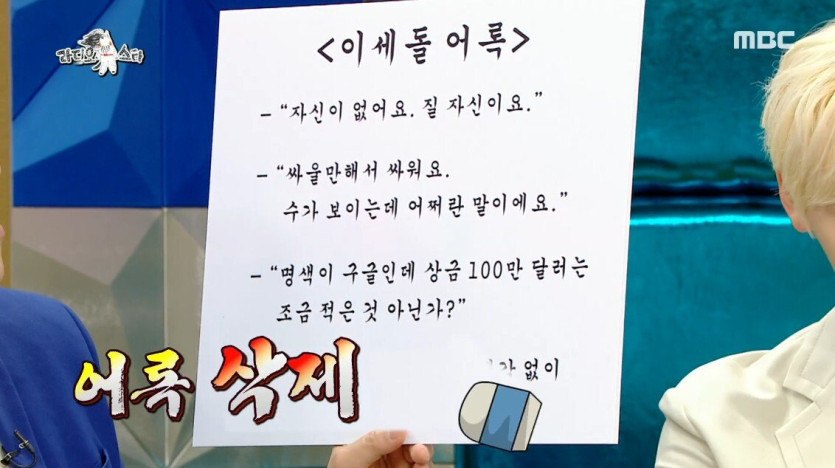 라디오스타
MBC
<이세돌 어록>
- “자신이 없어요. 질 자신이요.”
- “싸울만해서 싸워요.
수가 보이는데 어쩌란 말이에요.”
- “명색이 구글인데 상금 100만 달러는
조금 적은 것 아닌가?”
없이
어록 삭제